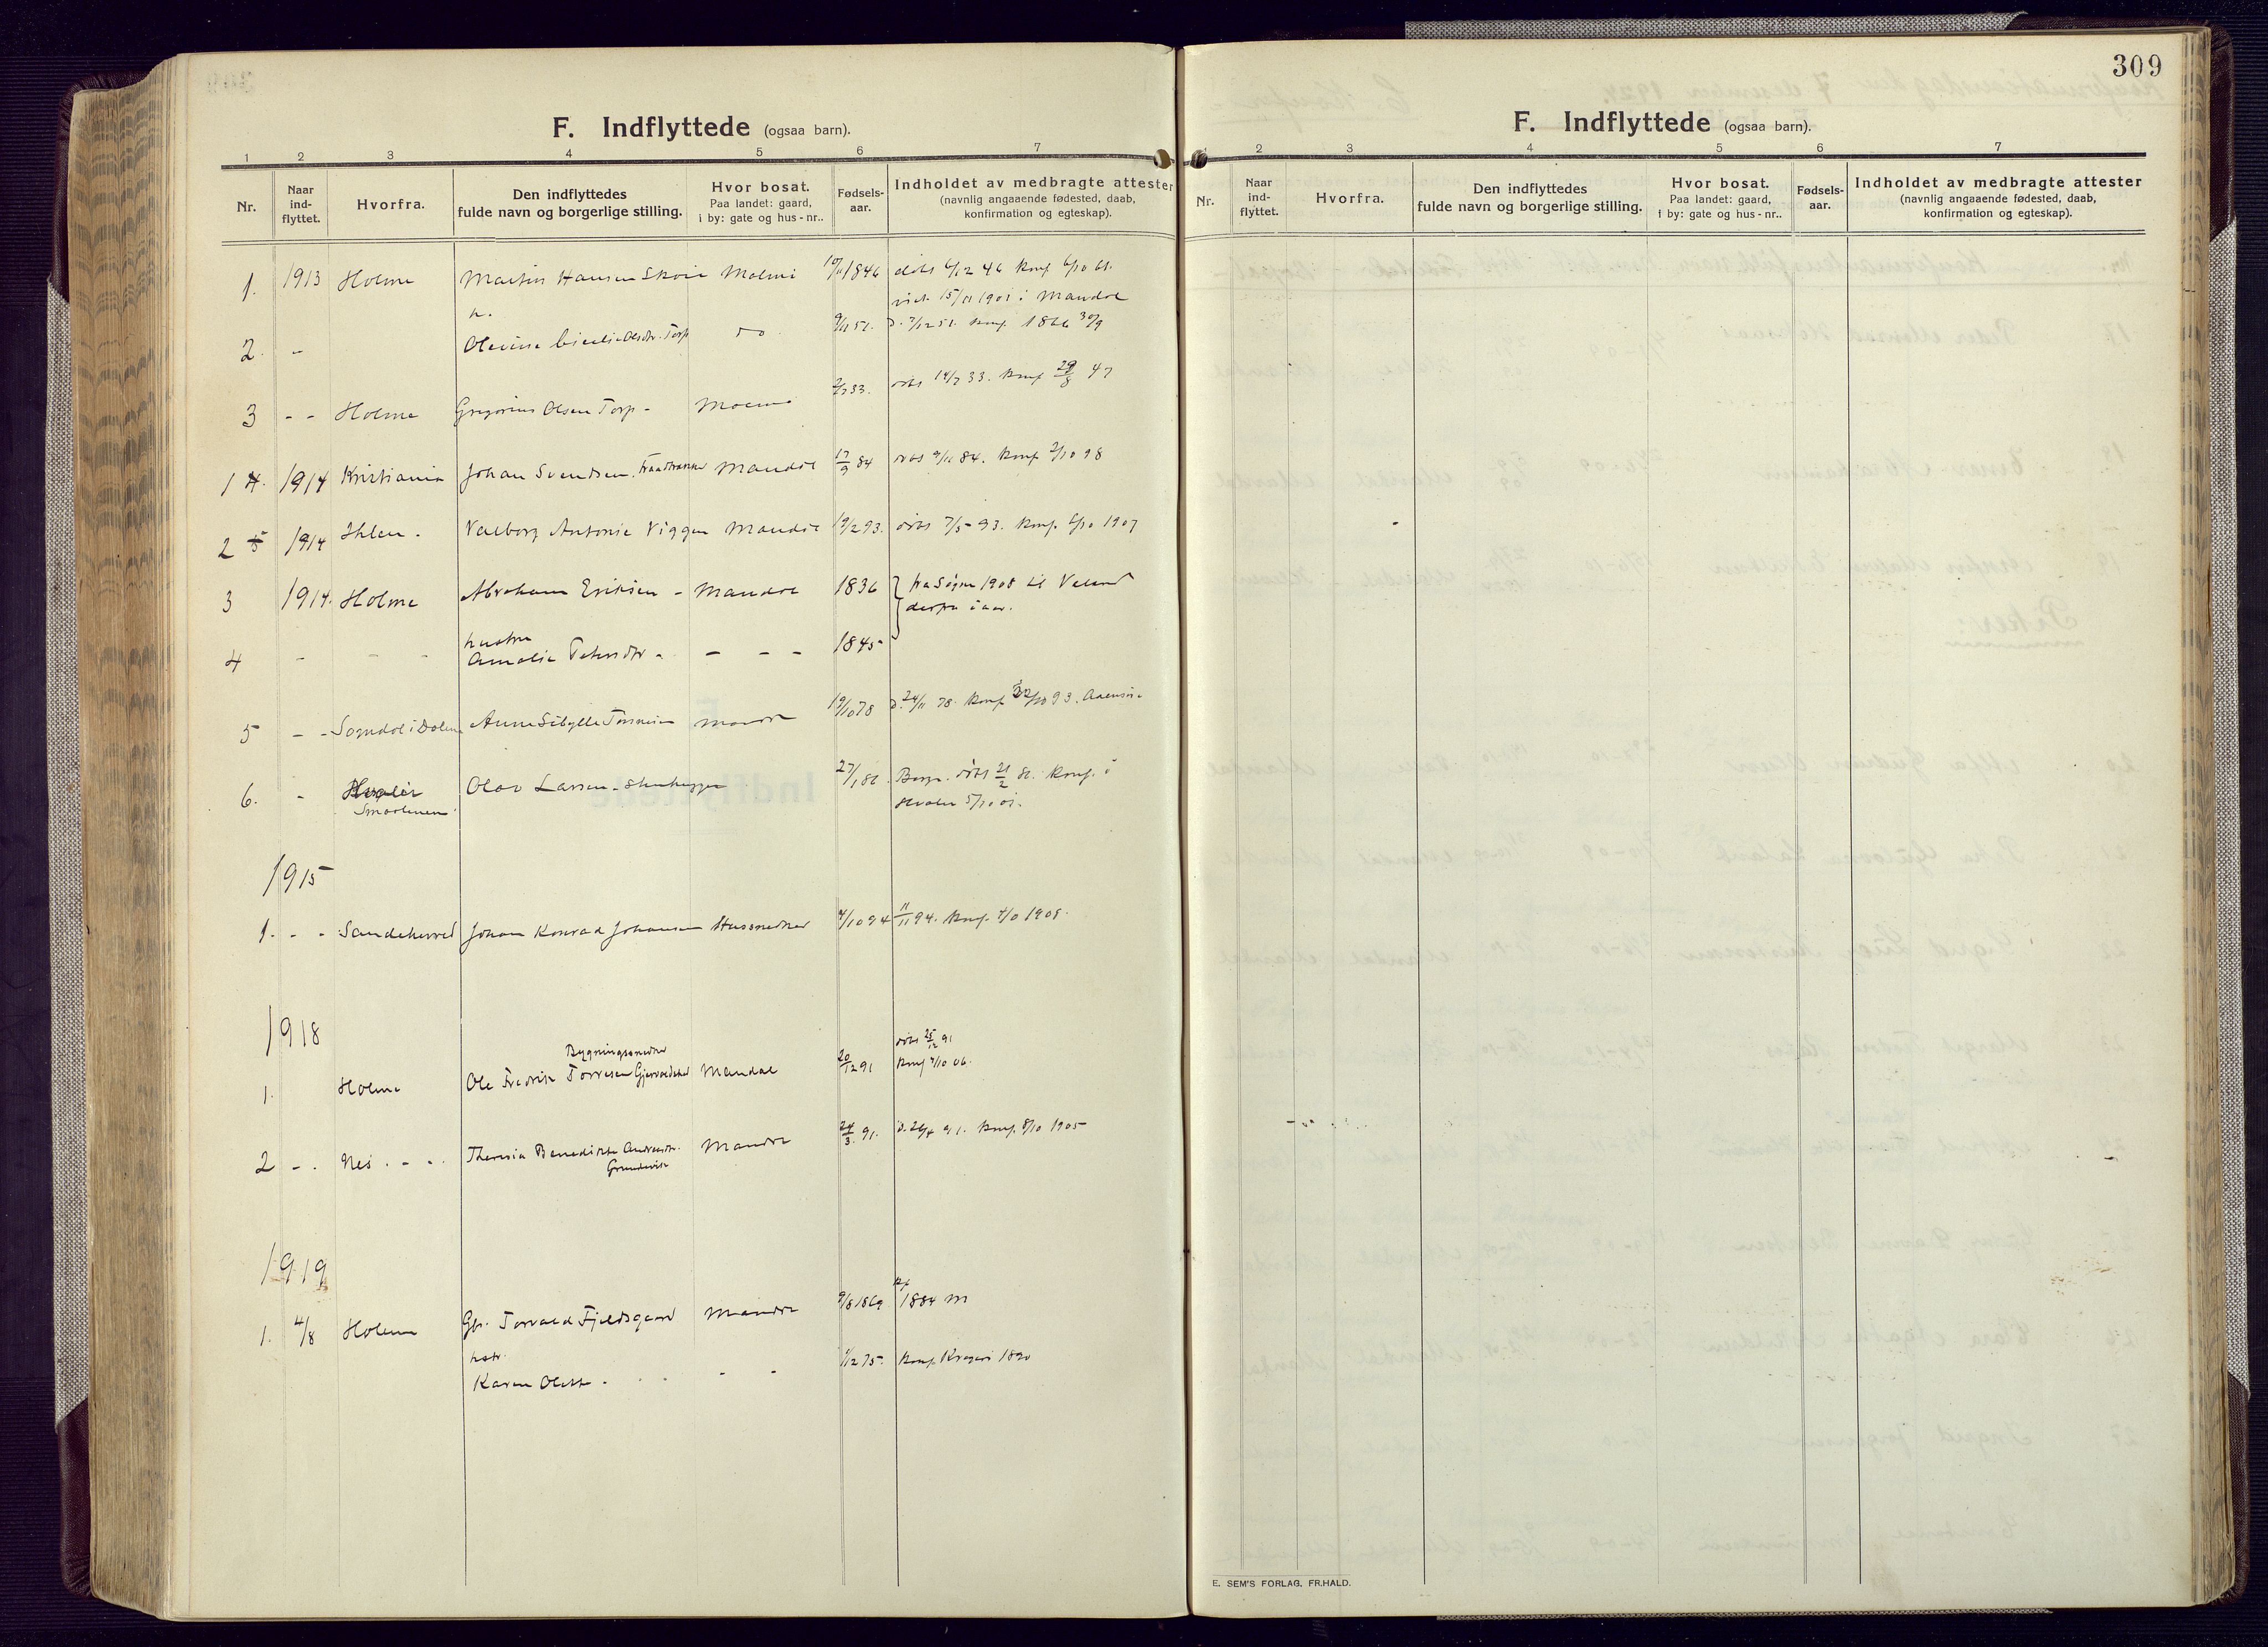 309
F. Indflyttede (ogsaa barn).
1 2 3 4 5 6 7
Nr.
Naar ind- flyttet.
Hvorfra.
Den indflyttedes fulde navn og borgerlige stilling.
Hvor bosat. Paa landet: gaard, i by: gate og hus-nr..
Fødsels- aar.
Indholdet av medbragte attester (navnlig angaaende fødested, daab, konfirmation og egteskap).
1. 1913 Holme Martin Hansen Malmø 1846 døbt 6/12 46 konf 6/10 61.
viet 15/11 1901 i Mandal
h.
2. - Olevine Olsdtr. Torp do 51. D. 7/12 51. konf. 1866 30/9
3 - - Holme Gregorius Olsen Torp - 33. døbt 14/7 33. konf 29/8 47
1 4. 1914 Kristiania Johan Svendsen. Mandal 17/9 84 døbt 9/11 84. konf 2/10 98
2 5 1914 Ihlen. Valborg Antonie Viggen Mandal 19/2 93. døbt 7/5 93. konf. 6/10 1907
3 1914. Holme Abraham Eriksen - Mandal 1836 fra Søgne 1908 til Valand
derfra i aar.
hustru
4 - - - Amalie Petersdtr - - - - 1845
5 - - Sogndal i Dalene Anne Sibylle Tønnesen Mandal 19/10 78 D. 24/11 78. konf 93.
6. - Hvaler Olav Larsen - stenhugger 27/1 86. Berge. døbt 21/2 86. konf. i
Smaalenene. Hvaler 5/10 01.
1915
1. - - Sandeherred Johan Konrad Johansen Hussnedker 4/10 94 11/11 94. konf. 4/10 1908.
1918
Bygningssnedker døbt 25/12 91
1. Holme Ole Fredrik Torvesen Mandal 20/12 91 konf 7/10 06.
2 - . Nes. - - . Theresia Benedikte Andreasdtr. Mandal 24/3. 91. D. 26/4 91. konf. 8/10 1905
Grundevik
1919
kf
1. 4/8 Holme Gbr. Torvald Fjeldsgaard Mandal 9/8 1869 1884 M
hstr.
Karen Olette - . . - - 1/12 75. konf. Kragerø 1890
F. Indflyttede (ogsaa barn).
1 2 3 4 5 6 7
Nr.
Naar ind- flyttet.
Hvorfra.
Den indflyttedes fulde navn og borgerlige stilling.
Hvor bosat. Paa landet: gaard, i by: gate og hus-nr..
Fødsels- aar.
Indholdet av medbragte attester (navnlig angaaende fødested, daab, konfirmation og egteskap).
E. SEM'S FORLAG, FR.HALD.